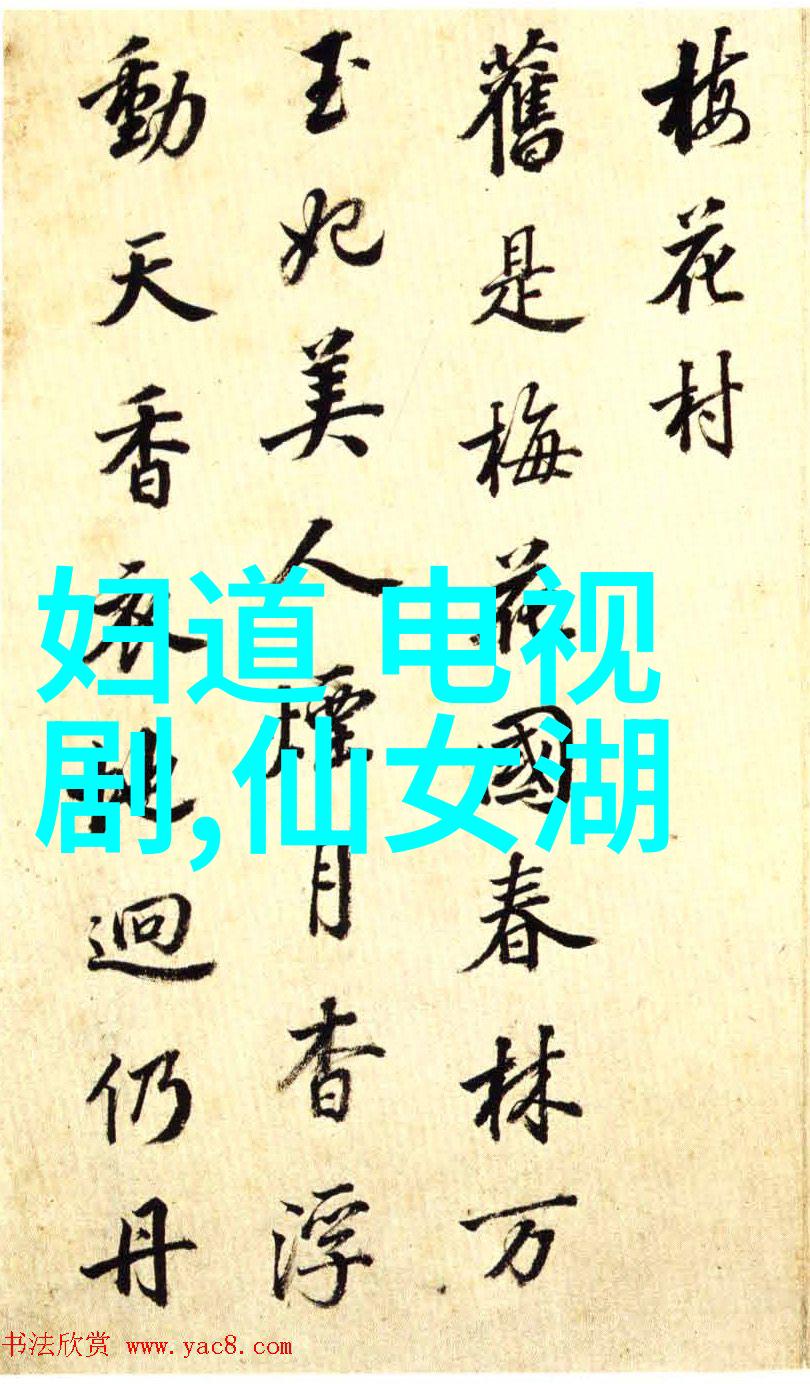 梅花村
舊是梅花國春林万
玉妃美人煙月杳浮
動天香衣迴仍丹
妇道 电视
剧,仙女湖
书法欣赏 www.yac8.com